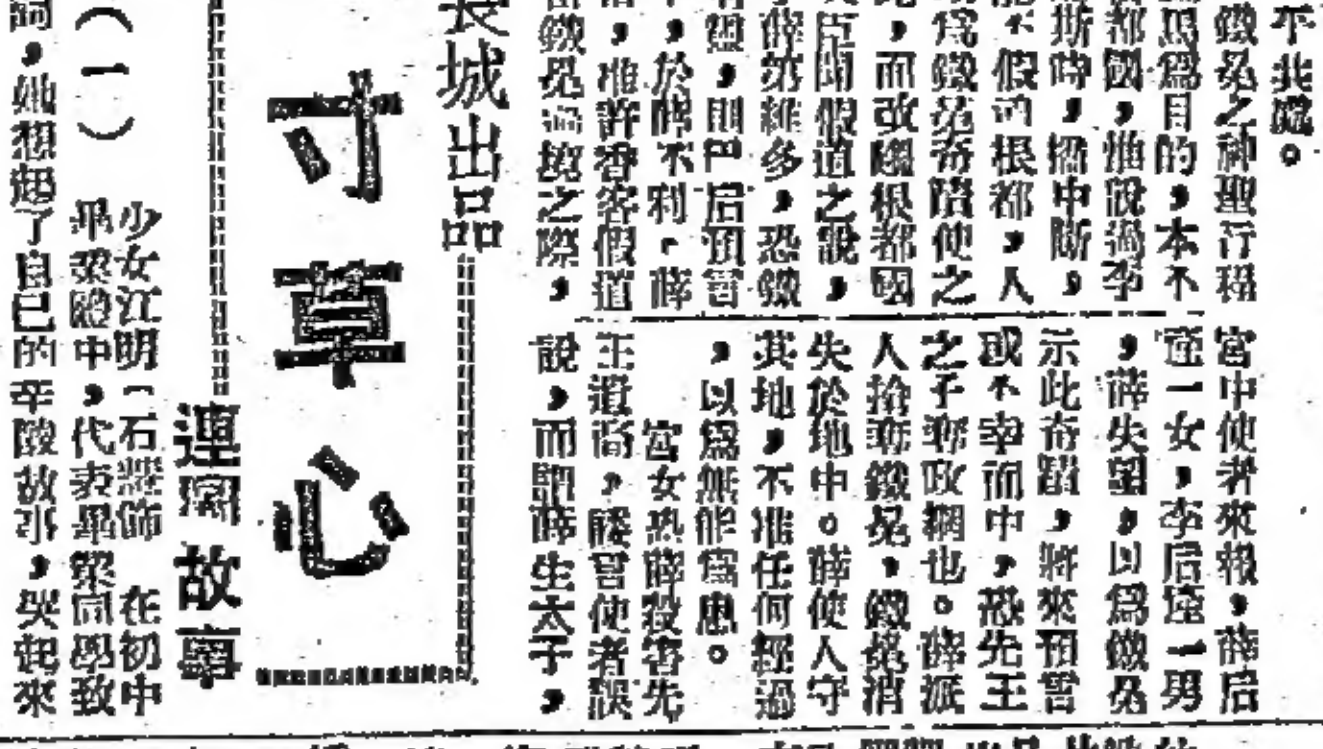 不共戴。
鐵兒之神聖行程
馬爲目的,本不
都國,惟說過李
斯時,猶中斷,
不假道根都,人
爲鐵兒奇蹟使之
,而改國根都國
臣聞假道之說,
薛弟雖多,恐鐵
,則巴后預言
,於薛不利。薛
,准許香客假道
鐵兒過境之際,
宮中使者來報,薛后
產一女,李后產一男
,薛失望,以爲鐵兒
示此奇蹟,將來預言
或不幸而中,恐先王
之子奪政權也。薛派
人搶奪鐵兒,鐵兒消
失於地中。薛使人守
其地,不准任何經過
,以爲無能爲患。
宮女恐薛殺害先
王遺裔,賤宮使者誤
說,而謂薛生太子,
長城出品
寸草心
連圖故事
(一)
少女江明(石慧飾 在初中
畢業禮中,代表畢業同學致
詞,她想起了自己的辛酸故事,哭起來